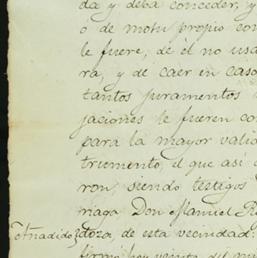 da y deba conceder, y
o de motu propio con
le fuere, de él no usa
ra, y de caer en caso
tantos juramentos
jaciones le fueren con
para la mayor valid
trumento, el que así o
ron, siendo testigos
riaga Don Manuel Ro
Añadido doza, de esta vecindad: